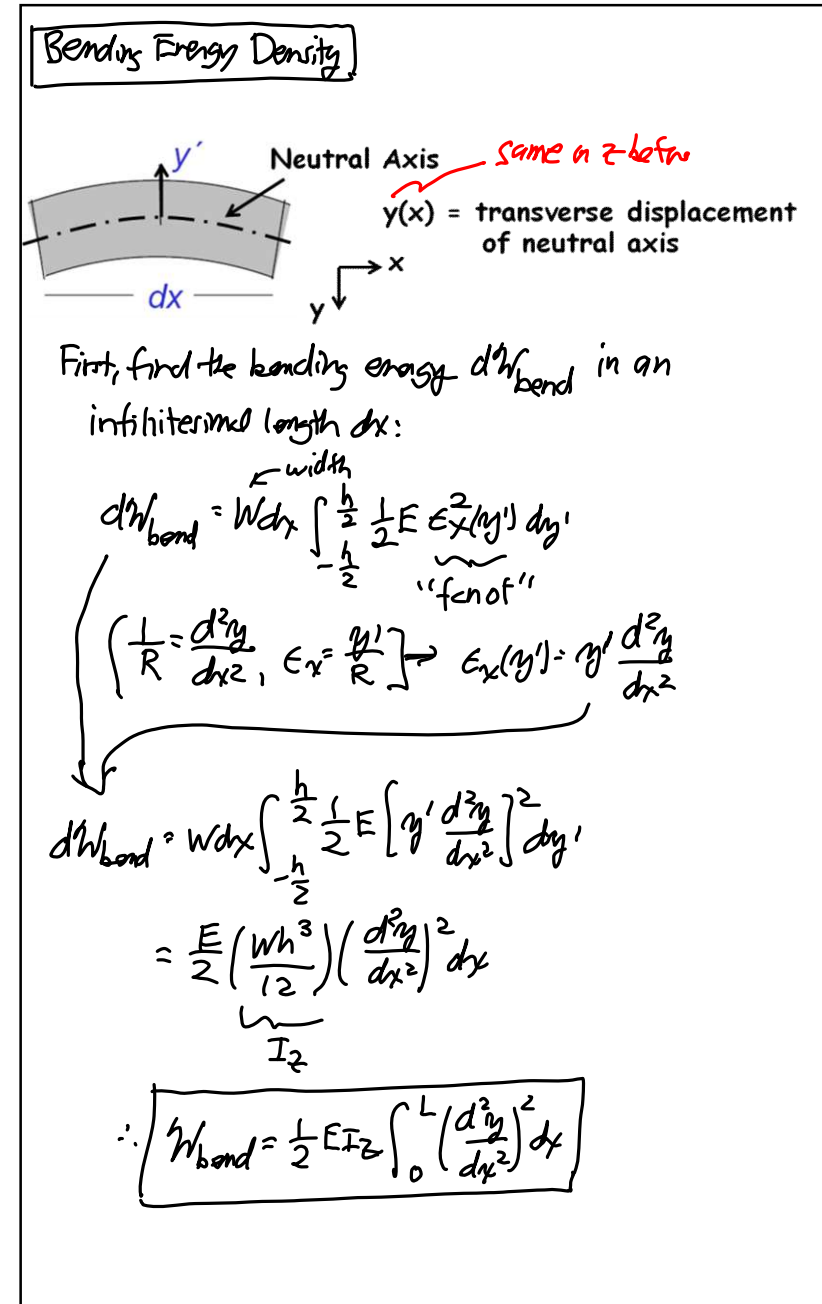 Bending Energy Density
y′
Neutral Axis
same as z before
y(x) = transverse displacement
of neutral axis
dx
x
y
First, find the bending energy dW_bend in an
infinitesimal length dx:
width
dW_bend = W dx ∫_{-h/2}^{h/2} 1/2 E ε_x^2(y') dy'
"fcn of"
[1/R = d²y/dx², ε_x = y'/R] → ε_x(y') = y' d²y/dx²
dW_bend = W dx ∫_{-h/2}^{h/2} 1/2 E [y' d²y/dx²]² dy'
= E/2 (Wh³/12) (d²y/dx²)² dx
I_z
∴ W_bend = 1/2 E I_z ∫_0^L (d²y/dx²)² dx